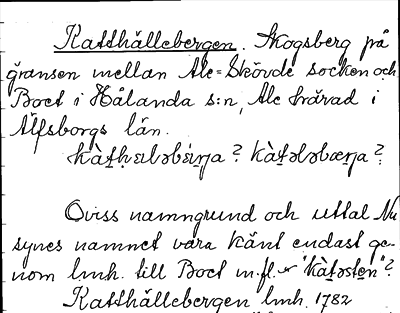 Katthällebergen. Skogsberg på
gränsen mellan Ale=Skövde socken och
Boet i Hålanda s:n, Ale härad i
Älfsborgs län.
Oviss namngrund och uttal. Nu
synes namnet vara känt endast ge-
nom lmk. till Boet m.fl.
Katthällebergen lmk. 1782